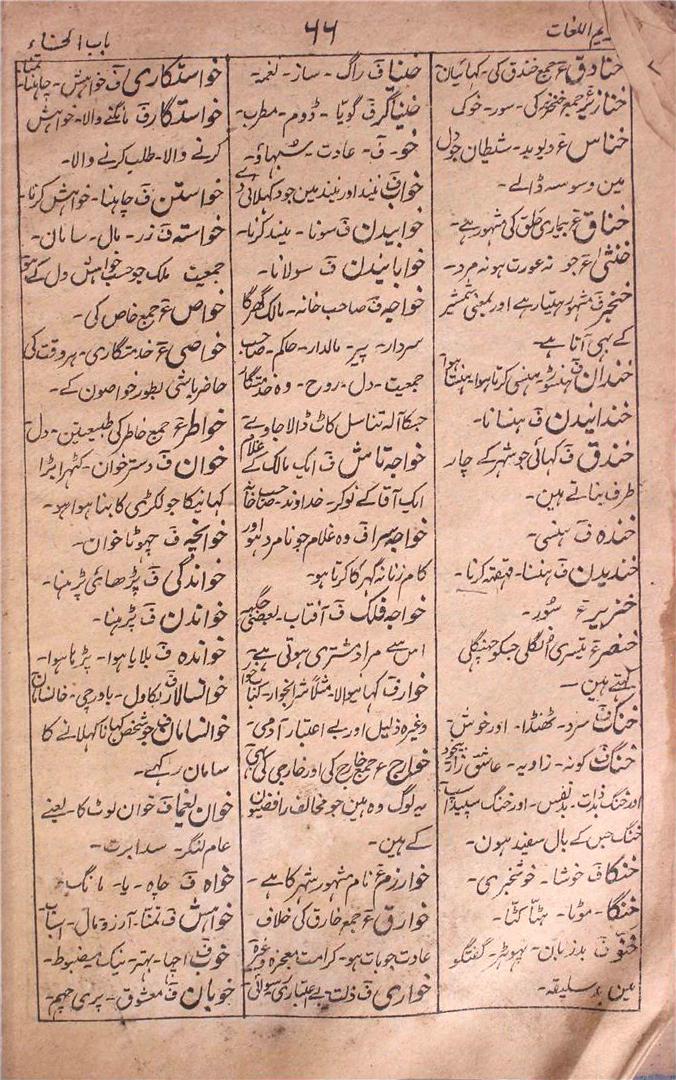 باب الخاء
۶۶
یم اللغات
خنادق ع جمع خندق کی۔ کہائیان
خنازیر ع جمع خنزیر کی۔ سور۔ خوک
خناس ع دیو بد۔ شیطان جو دل
مین وسوسہ ڈالے۔
خناق ع بیماری حلق کی مشہور ہے۔
خنثی ع جو نہ عورت ہو نہ مرد۔
خنجر ف مشہور ہتیار ہے اور بمعنی شمشیر
کے بھی آتا ہے۔
خندان ف ہنسی کرتا ہوا۔ ہنستا ہوا
خندانیدن ف ہنسانا۔
خندق ف کہائی جو شہر کے چار
طرف بناتے ہین۔
خندہ ف ہنسی۔
خندیدن ف ہنسنا۔ قہقہہ کرنا۔
خنزیر ع سُور۔
خنصر ع تیسری اُنگلی جسکو چھنگلی
کہتے ہین۔
خنک ف سرد۔ ٹھنڈا۔ اور خوش
خنگ ف کونہ۔ زاویہ۔ عاشق زار
اور خنگ ذات۔ بد نفس۔ اور خنگ سپید اسپ
خنگ جس کے بال سفید ہون۔
خنکا ف خوشا۔ خوشخبری۔
خنگا۔ موٹا۔ ہٹا کٹا۔
ف بد زبان۔ پھوہڑ۔ گفتگو
مین بد سلیقہ۔
خنیا ف راگ۔ ساز۔ نغمہ۔
خنیاگر ف گویا۔ ڈوم۔ مطرب۔
خو۔ ف۔ عادت۔ سبہاؤ۔
خواب ف نیند اور نیند مین جو دکھلائی دے
خوابیدن ف سونا۔ نیند کرنا۔
خوابانیدن ف سولانا۔
خواجہ ف صاحب خانہ۔ مالک گھر کا
سردار۔ پیر۔ مالدار۔ حاکم۔ صاحب
جمعیت۔ دل۔ روح۔ وہ خدمتگار
جسکا آلہ تناسل کاٹ ڈالا جاوے
خواجہ تاش ف ایک مالک کے غلام
ایک آقا کے نوکر۔ خداوند۔ صاحب خانہ
خواجہ سرا ف وہ غلام جو نامرد ہو اور
کام زنانہ گھر کا کرتا ہو۔
خواجہ فلک ف آفتاب۔ بعضی جگہ
اس سے مراد مشتری ہوتی ہے۔
خوار ف کہانے والا۔ مثلاً شرابخوار۔ کباب خوار
وغیرہ ذلیل اور بے اعتبار آدمی۔
خوارج ع جمع خارج کی اور خارجی کی بھی
یہ لوگ وہ ہین جو مخالف رافضیون
کے ہین۔
خوارزم ع نام مشہور شہر کا ہے۔
خوارق ع جمع خارق کی خلاف
عادت جو بات ہو۔ کرامت معجزہ وغیرہ
خواری ف ذلت۔ بے اعتباری رسوائی
خواستگاری ف خواہش۔ چاہنا۔ تمنا۔
خواستگار ف مانگنے والا۔ خواہش
کرنے والا۔ طلب کرنے والا۔
خواستن ف چاہنا۔ خواہش کرنا۔
خواستہ ف زر۔ مال۔ سامان۔
جمعیت ملک جو حسب خواہش دل کے ہو
خواص ع جمع خاص کی۔
خواصی ع خدمتگاری۔ ہر وقت کی
حاضر باشی بطور خواصون کے۔
خواطر ع جمع خاطر کی طبیعتین۔ دل
خوان ف دسترخوان۔ کٹہرا بڑا
کہانیکا جو لکڑی کا بنا ہوا ہو۔
خوانچہ ف چھوٹا خوان۔
خواندگی ف پڑھائی پڑہنا۔
خواندن ف پڑہنا۔
خواندہ ف بلایا ہوا۔ پڑہا ہوا۔
خوانسالار ف بکاول۔ باورچی۔ خانسامان
خوانسامان ف جو شخص کہانا کہلانے کا
سامان رکہے۔
خوان یغما ف خوان لوٹ کا۔ یعنے
عام لنگر۔ سدا برت۔
خواہ ف چاہ۔ یا۔ مانگ
خواہش ف تمنا۔ آرزو مال۔ اسباب
خوب ف اچہا۔ بہتر۔ نیک۔ مضبوط۔
خوبان ف معشوق۔ پری چہم۔